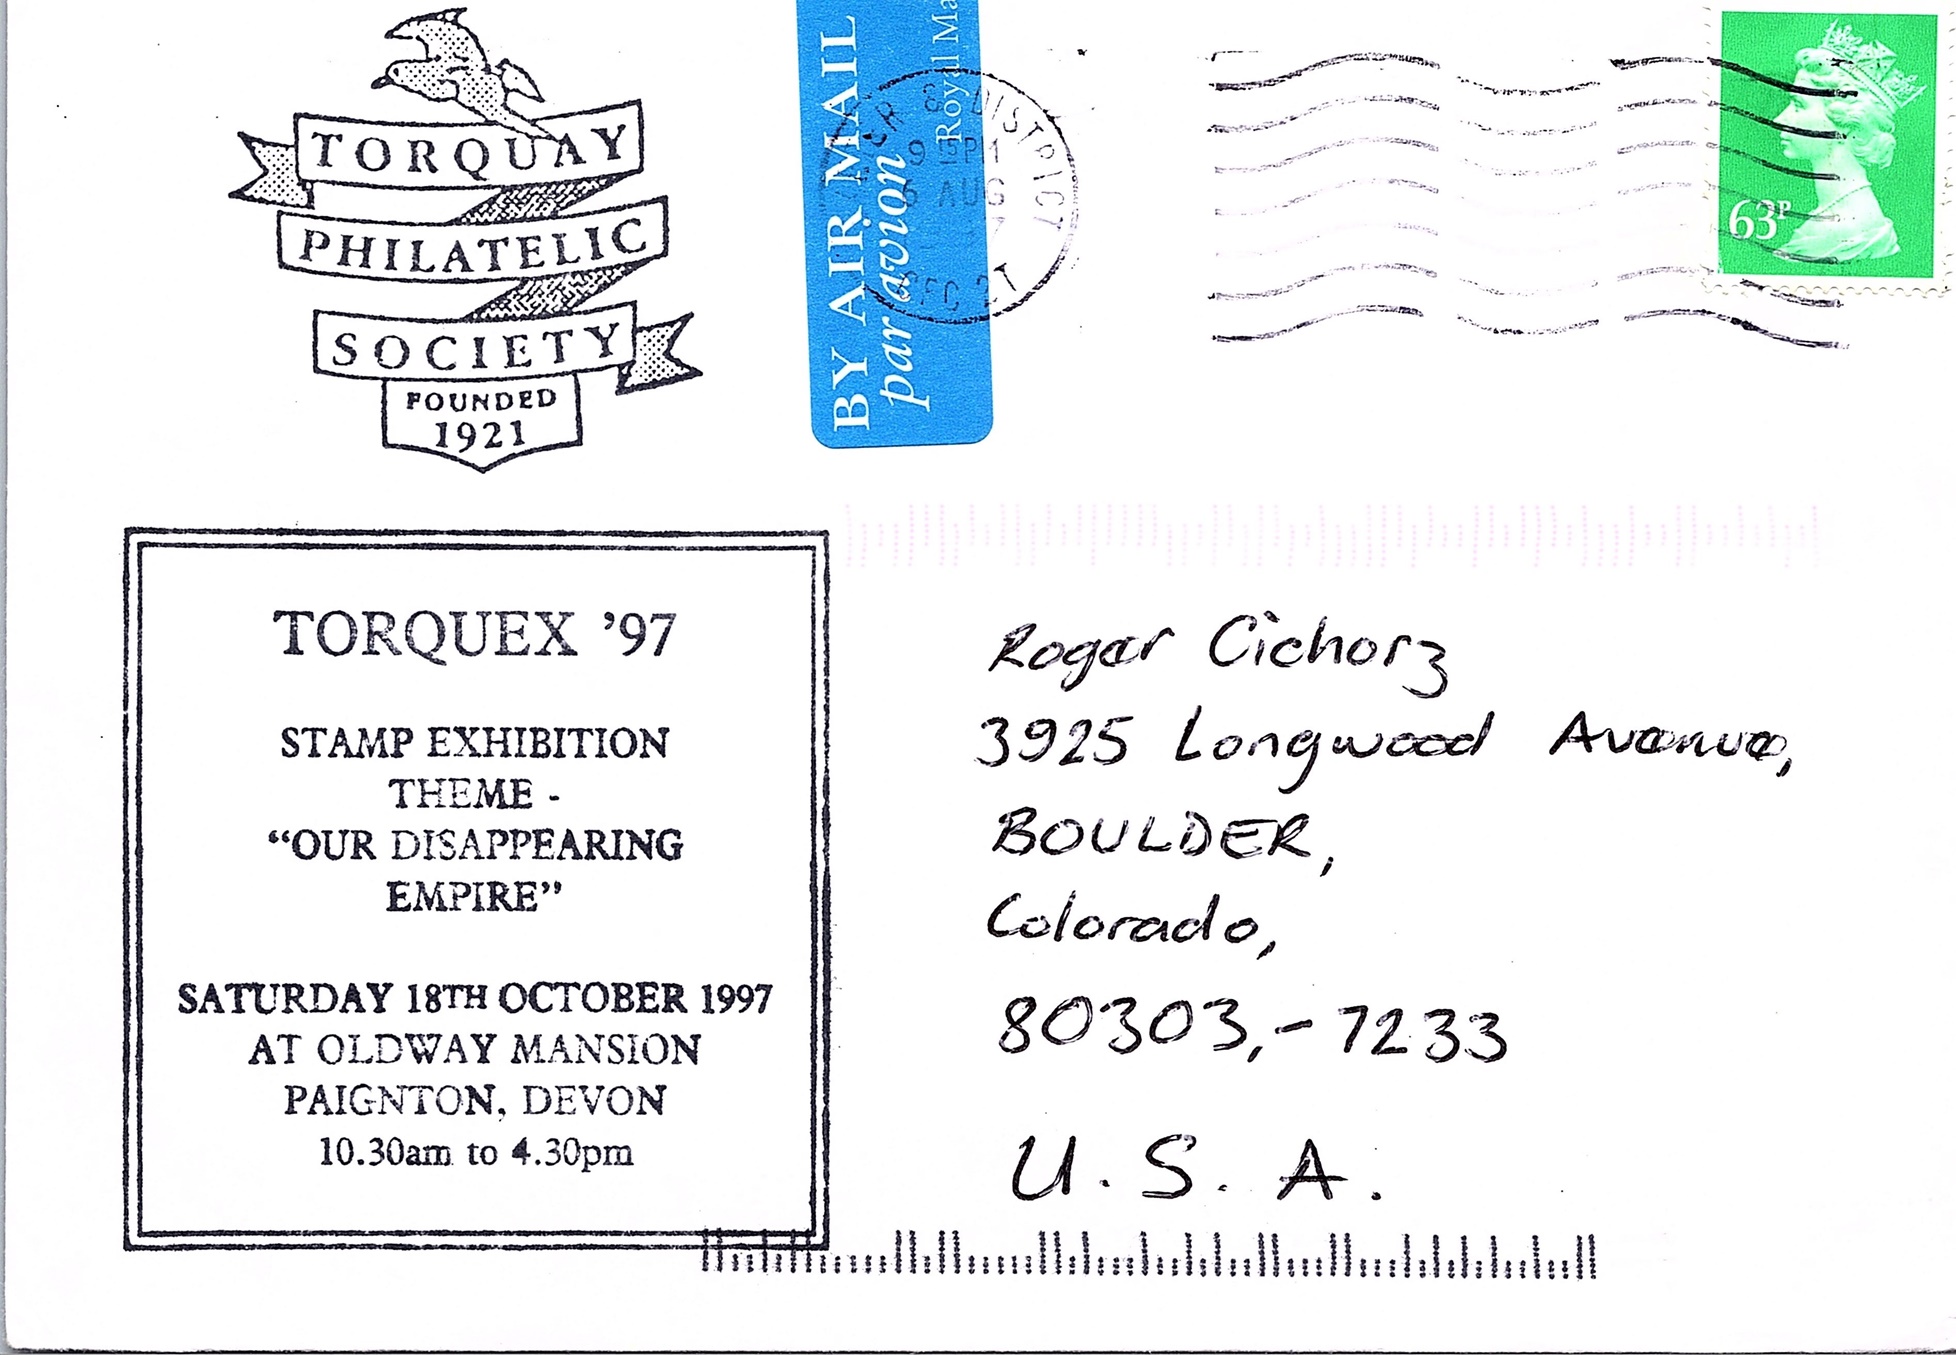 TORQUAY
PHILATELIC
SOCIETY
FOUNDED
1921
BY AIR MAIL
par avion
Royal Ma
DISTRICT
AUG
63P
TORQUEX '97
STAMP EXHIBITION
THEME -
“OUR DISAPPEARING
EMPIRE”
SATURDAY 18TH OCTOBER 1997
AT OLDWAY MANSION
PAIGNTON, DEVON
10.30am to 4.30pm
Roger Cichorz
3925 Longwood Avenue,
BOULDER,
Colorado,
80303,-7233
U.S.A.